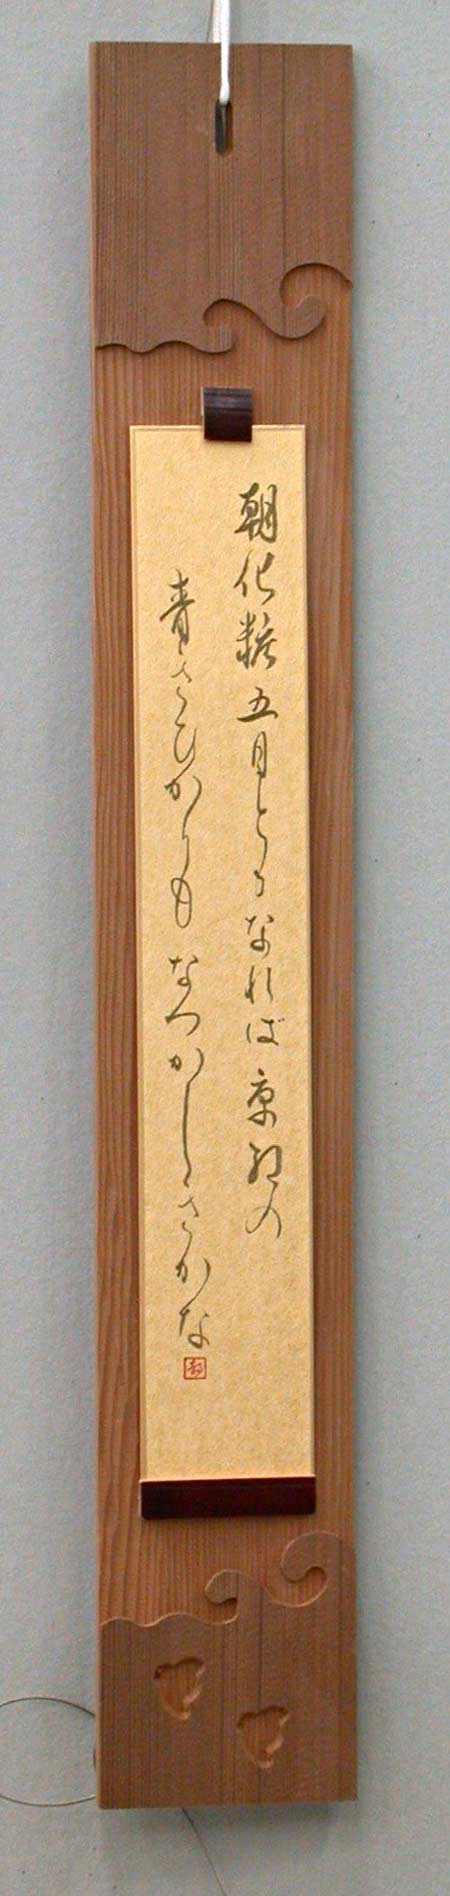 朝化粧五月となれば京紅の
青きひかりもなつかしきかな